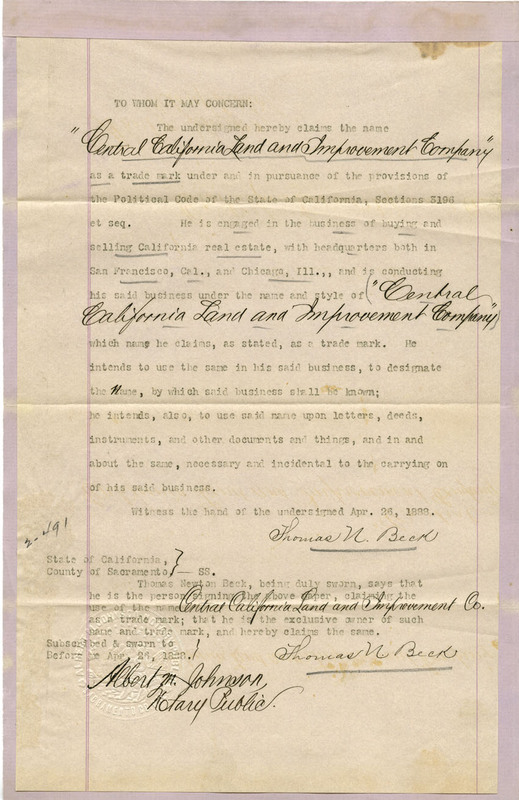 TO WHOM IT MAY CONCERN:
The undersigned hereby claims the name
"Central California Land and Improvement Company"
as a trade mark under and in pursuance of the provisions of
the Political Code of the State of California, Sections 3196
et seq. He is engaged in the business of buying and
selling California real estate, with headquarters both in
San Francisco, Cal., and Chicago, Ill.,, and is conducting
his said business under the name and style of ("Central
California Land and Improvement Company")
which name he claims, as stated, as a trade mark. He
intends to use the same in his said business, to designate
the Name, by which said business shall be known;
he intends, also, to use said name upon letters, deeds,
instruments, and other documents and things, and in and
about the same, necessary and incidental to the carrying on
of his said business.
Witness the hand of the undersigned Apr. 26, 1888.
Thomas N. Beck
2-491
State of California,
County of Sacramento, } SS.
Thomas Newton Beck, being duly sworn, says that
he is the person signing the above paper, claiming the
use of the name Central California Land and Improvement Co.
as a trade mark; that he is the exclusive owner of such
name and trade mark, and hereby claims the same.
Subscribed & sworn to
Before me Apr. 26, 1888.
Thomas N Beck
Albert M. Johnson,
Notary Public.